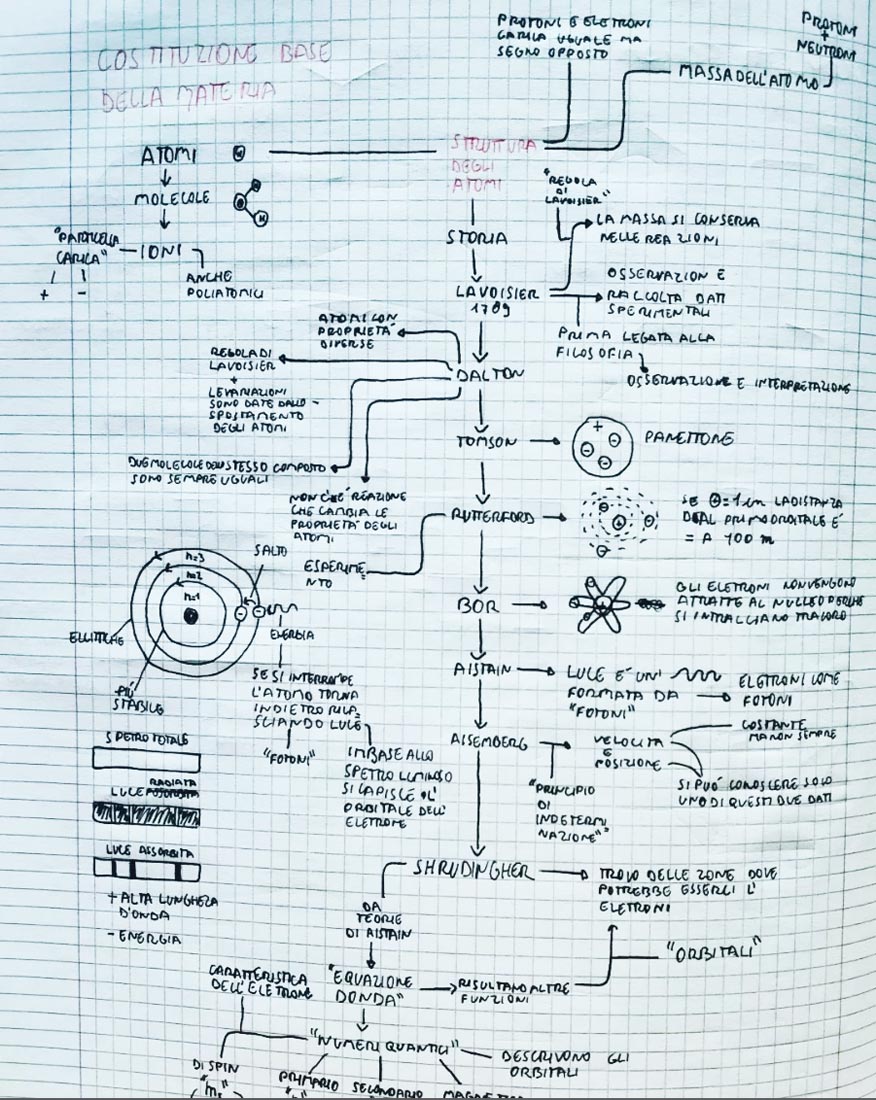 PROTONI E ELETRONI
CARICA UGUALE MA
SEGNO OPPOSTO
PROTONI
+
NEUTRONI
MASSA DELL'ATOMO
COSTITUZIONE BASE
DELLA MATERIA
STRUTTURA
DEGLI
ATOMI
ATOMI
MOLECOLE
H
"PARTICELLA
CARICA"
IONI
+ -
ANCHE
POLIATOMICI
"REGOLA
DI
LAVOISIER"
STORIA
LA MASSA SI CONSERVA
NELLE REAZIONI
LAVOISIER
1789
OSSERVAZION E
RACCOLTA DATI
SPERIMENTALI
PRIMA LEGATA ALLA
FILOSOFIA
OSSERVAZIONE E INTERPRETAZIONE
ATOMI CON
PROPRIETÀ
DIVERSE
REGOLA DI
LAVOISIER
+
LE VARIAZIONI
SONO DATE DALLO
SPOSTAMENTO
DEGLI ATOMI
DALTON
DUE MOLECOLE DELLO STESSO COMPOSTO
SONO SEMPRE UGUALI
NON C'È REAZIONE
CHE CAMBIA LE
PROPRIETÀ DEGLI
ATOMI
TOMSON
+
-
-
-
-
PANETTONE
RUTTERFORD
+
-
-
-
SE + = 1 cm LA DISTANZA
DAL PRIMO ORBITALE È
= A 100 m
ESPERIME
NTO
SALTO
n=3
n=2
n=1
- -
ELLITTICHE
PIÙ
STABILE
ENERGIA
SE SI INTERROMPE
L'ATOMO TORNA
INDIETRO RILA
SCIANDO LUCE
"FOTONI"
IN BASE ALLO
SPETRO LUMINOSO
SI CAPISCE L'
ORBITALE DELL'
ELETRONE
BOR
GLI ELETRONI NON VENGONO
ATTRATTE AL NUCLEO PERCHÈ
SI INTRALCIANO TRA LORO
AISTAIN
LUCE È UN'
FORMATA DA
"FOTONI"
ELETRONI COME
FOTONI
AISEMBERG
VELOCITÀ
E
POSIZIONE
COSTANTE
MA NON SEMPRE
SI PUÒ CONOSCERE SOLO
UNO DI QUESTI DUE DATI
"PRINCIPIO
DI
INDETERMI
NAZIONE"
SPETRO TOTALE
RADIATA
LUCE
LUCE ASSORBITA
+ ALTA LUNGHEZA
D'ONDA
- ENERGIA
SHRUDINGHER
TROVO DELLE ZONE DOVE
POTREBBE ESSERCI L'
ELETRONI
DA
TEORIE
DI AISTAIN
"ORBITALI"
CARATTERISTICA
DELL'ELETRONE
"EQUAZIONE
DONDA"
RISULTANO ALTRE
FUNZIONI
"NUMERI QUANTICI"
DESCRIVONO GLI
ORBITALI
DI SPIN
PRIMARIO
SECONDARIO